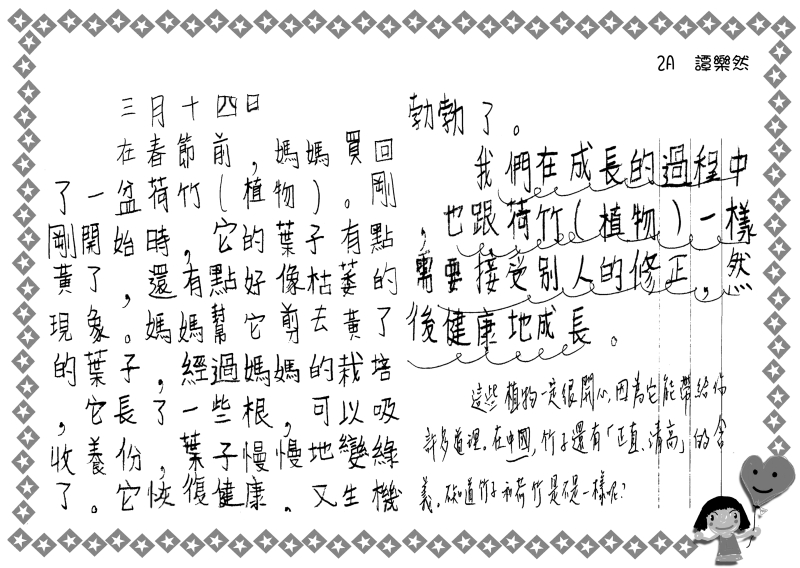 2A 譚樂然
三月十四日
在春節前，媽媽買回
了一盆荷竹（植物）。剛
剛開始時，它的葉子有點
黃了，還有點好像枯萎的
現象。媽媽幫它剪去黃了
的葉子，經過媽媽的栽培
，它長了一些根，可以吸
收養份，葉子慢慢地變綠
了。它恢復健康。又生機
勃勃了。
我們在成長的過程中
，也跟荷竹（植物）一樣
，需要接受別人的修正，然
後健康地成長。
這些植物一定很開心，因為它能帶給你
許多道理。在中國，竹子還有「正直、清高」的含
義。不知道竹子和荷竹是不是一樣呢？